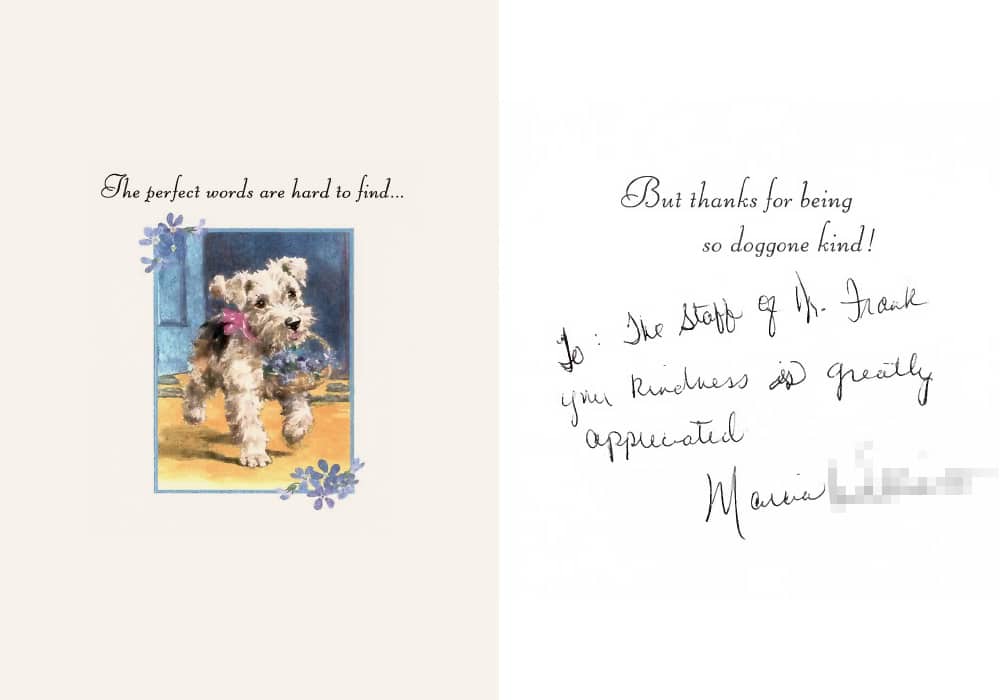 The perfect words are hard to find...
But thanks for being
so doggone kind!
To: The Staff of Dr. Frank
your kindness is greatly
appreciated
Marcia